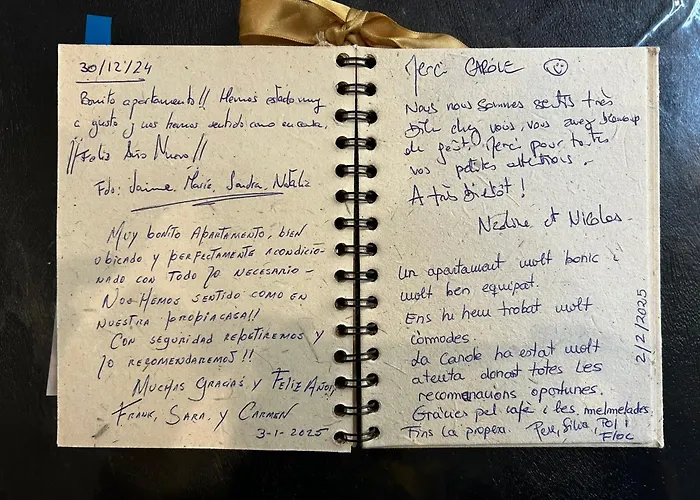 30/12/24
Bonito apartamento!! Hemos estado muy
a gusto y nos hemos sentido como en casa.
¡¡Feliz Año Nuevo!!
Fdo: Jaime, María, Sandra, Natalia
MUY BONITO APARTAMENTO, BIEN
UBICADO Y PERFECTAMENTE ACONDICIO-
NADO CON TODO LO NECESARIO -
NOS HEMOS SENTIDO COMO EN
NUESTRA PROPIA CASA!!
CON SEGURIDAD REPETIREMOS Y
LO RECOMENDAREMOS!!
MUCHAS GRACIAS Y FELIZ AÑO!!
FRANK, SARA Y CARMEN
3-1-2025
Merci CAROLE
Nous nous sommes sentis très
bien chez vous, vous avez beaucoup
de goût, Merci pour toutes
vos petites attentions -
A très Bientôt !
Nadine et Nicolas -
Un apartament molt bonic i
molt ben equipat.
Ens hi hem trobat molt
còmodes.
La Carole ha estat molt
atenta donant totes les
recomanacions oportunes.
Gràcies pel cafè i les melmelades.
Fins la propera. Pere, Sílvia, Pol i
Floc
2/2/2025